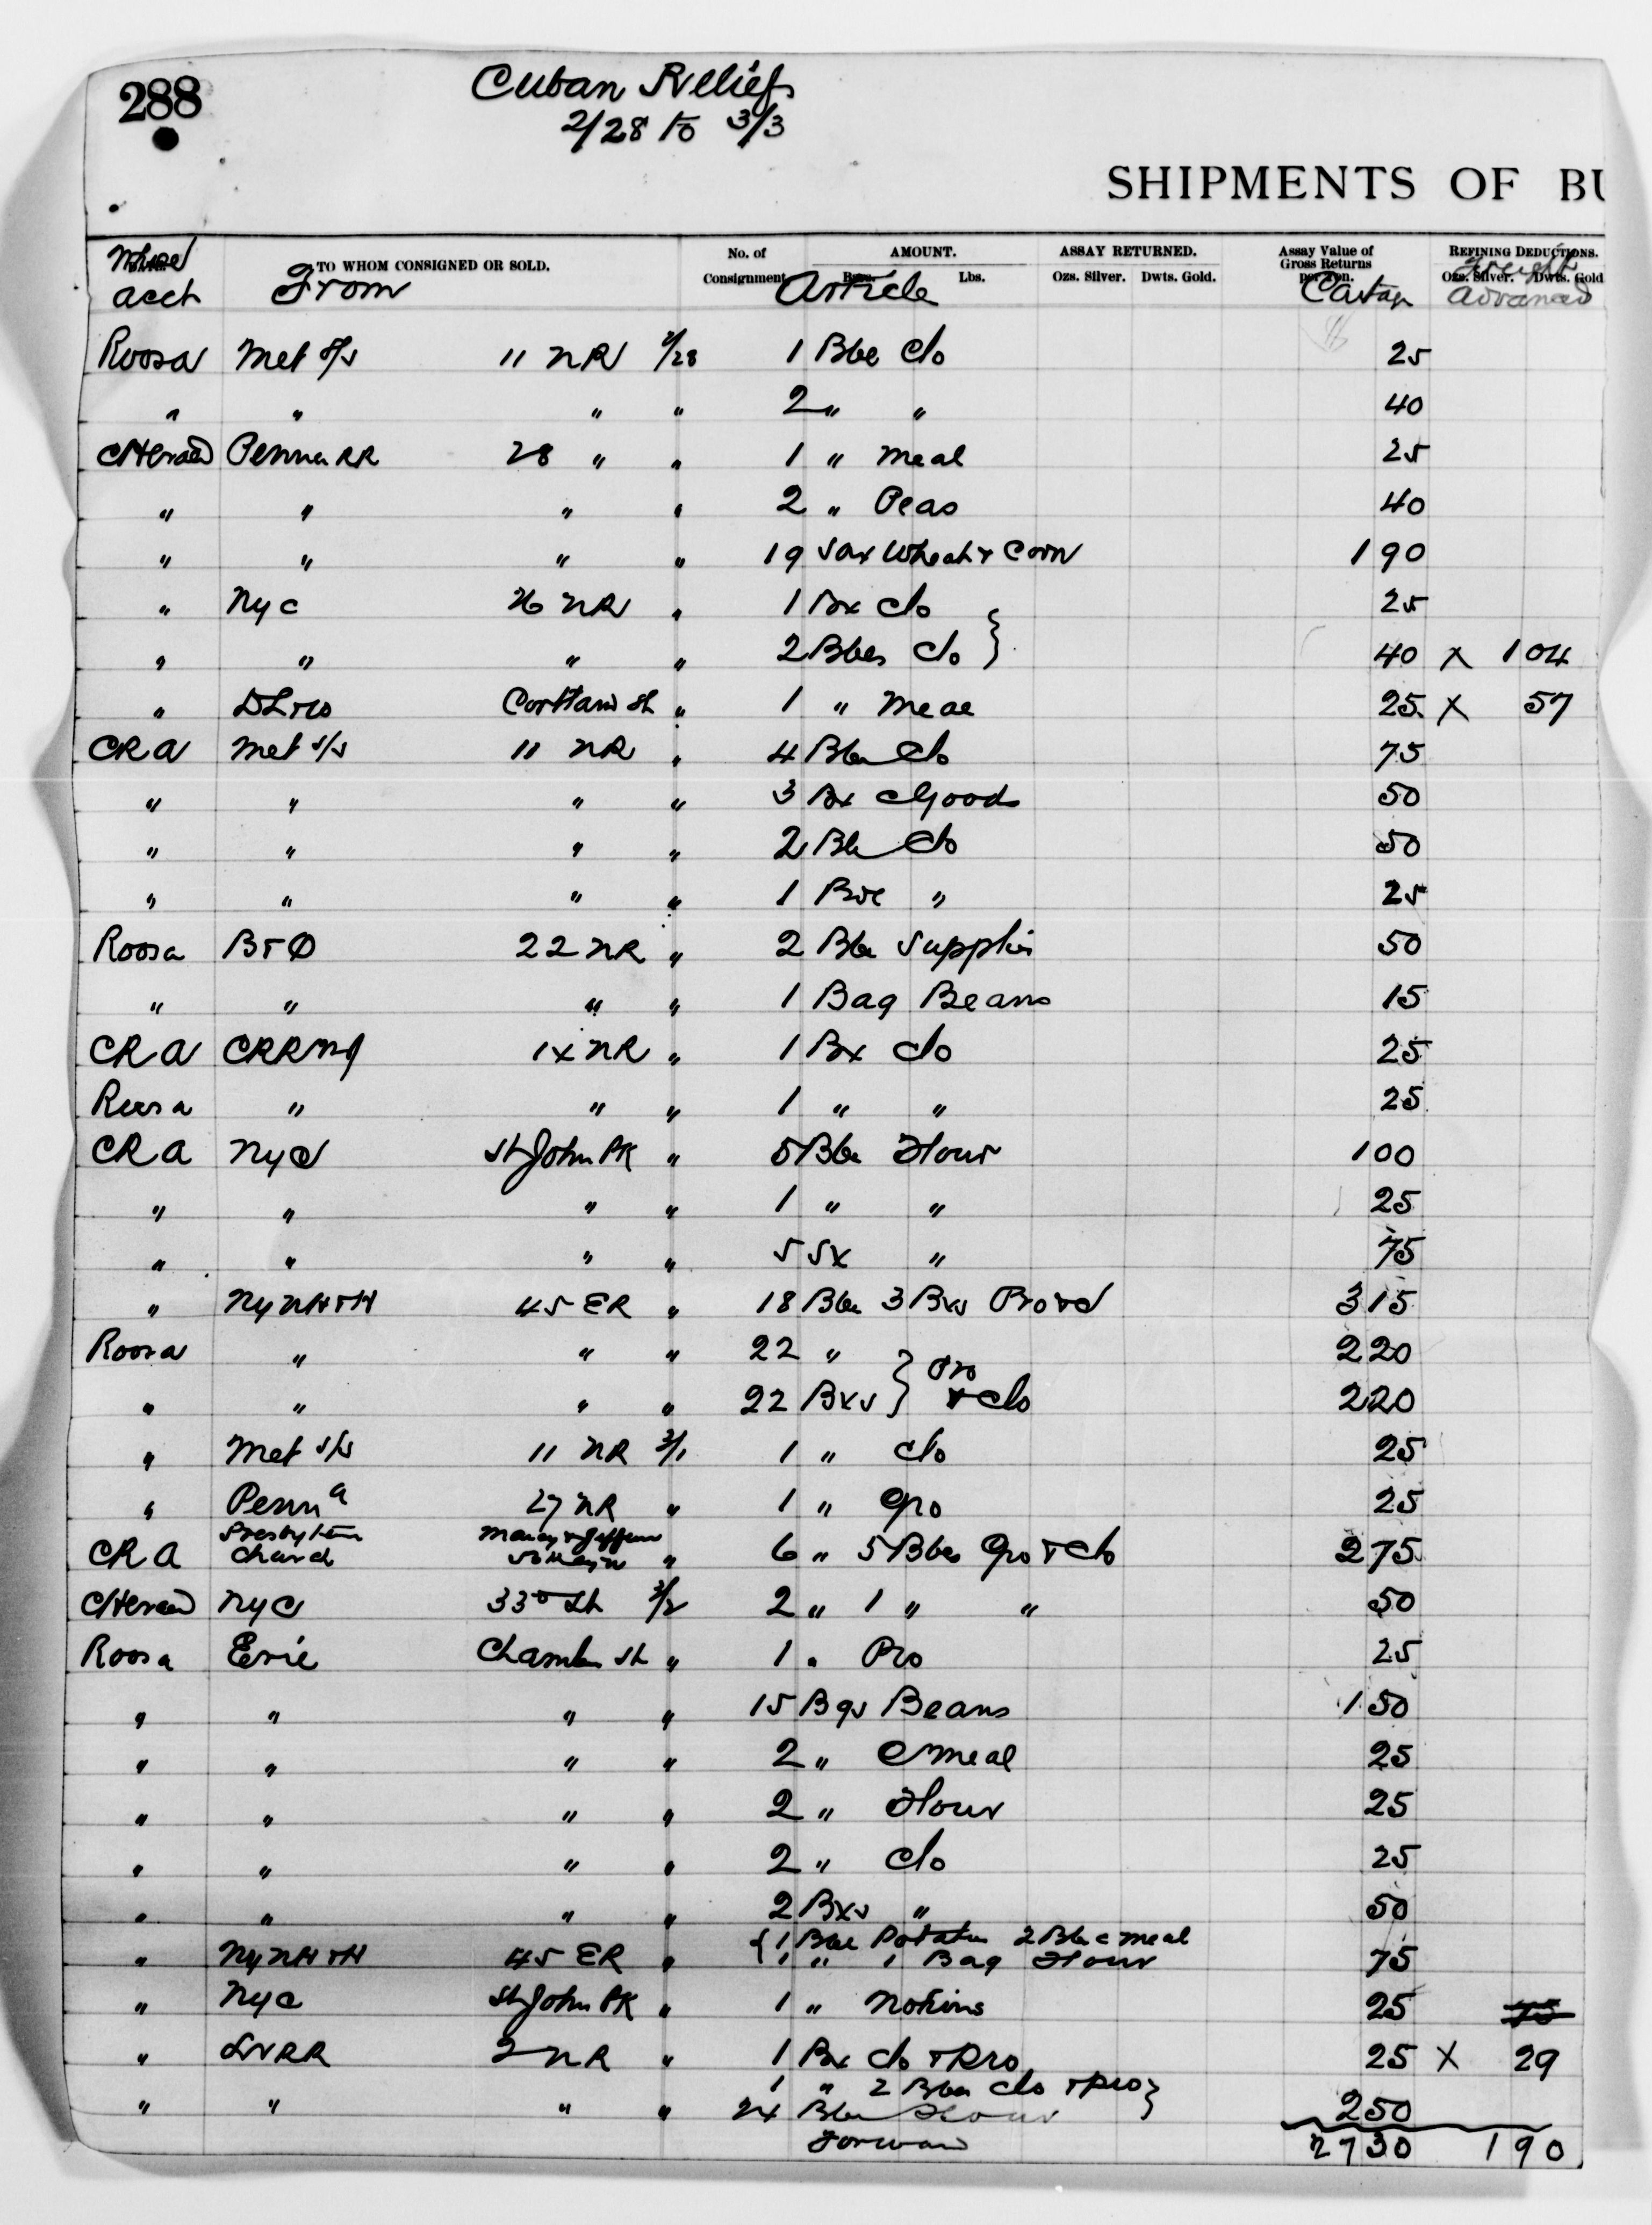 288
Cuban Relief
2/28 to 3/3
SHIPMENTS OF BU
TO WHOM CONSIGNED OR SOLD. No. of Consignment AMOUNT. Lbs. ASSAY RETURNED. Ozs. Silver. Dwts. Gold. Assay Value of Gross Returns per Ton. REFINING DEDUCTIONS. Ozs. Silver. Dwts. Gold
Whose acct From Article Cartage Freight Advanced
Roosa Met S/S 11 NR 2/28 1 Bbl Clo 25
" " " " 2 " " 40
CHerald Penna RR 28 " " 1 " Meal 25
" " " " 2 " Peas 40
" " " " 19 Sax Wheat & Corn 190
" NYC 26 NR " 1 Bx Clo } 25
" " " " 2 Bbls Clo } 40 X 104
" DL&W Cortland St " 1 " Meal 25 X 57
CRA Met S/S 11 NR " 4 Bbls Clo 75
" " " " 3 Bx CGoods 50
" " " " 2 Bls Clo 50
" " " " 1 " 25
Roosa B&O 22 NR " 2 Bbls Supplies 50
" " " " 1 Bag Beans 15
CRA CRRNJ 14 NR " 1 Bx Clo 25
Roosa " " " 1 " " 25
CRA NYC St John PK " 5 Bbls Flour 100
" " " " 1 " " 25
" " " " 5 Sx " 75
" NYNH&H 45 ER " 18 Bbls 3 Bxs Pro & Cl 315
Roosa " " " 22 " } Pro 220
" " " " 22 Bxs } & Clo 220
" Met S/S 11 NR 3/1 1 " Clo 25
" Penna 27 NR " 1 " Gro 25
CRA Presbyterian Church " 6 " 5 Bbls Gro & Clo 275
CHerald NYC 33d St 3/2 2 " 1 " " 50
Roosa Erie Chambers St " 1 " Pro 25
" " " " 15 Bgs Beans 150
" " " " 2 " CMeal 25
" " " " 2 " Flour 25
" " " " 2 " Clo 25
" " " " 2 Bxs " 50
" NYNH&H 45 ER " { 1 Bbl Potatoes 2 Bbls CMeal
1 " 1 Bag Flour 75
" NYC St John PK " 1 " Notions 25 75
" LVRR 2 NR " 1 Bx Clo & Pro 25 X 29
1 " 2 Bbls Clo & Pro }
" " " " 24 Bbls Flour 250
Forward 2730 190